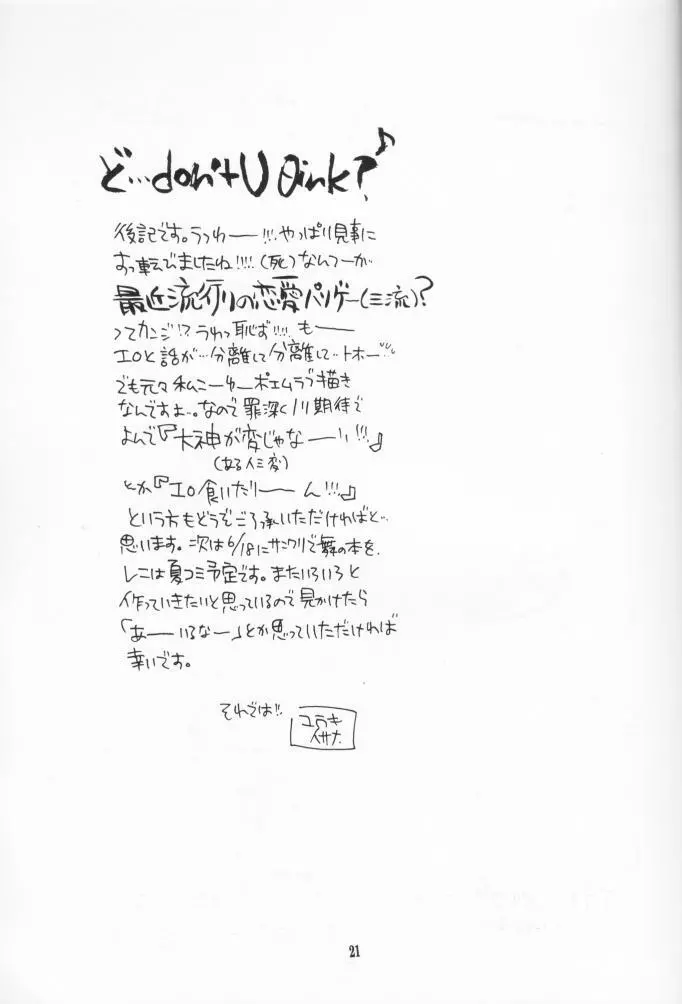 ど…don't U θink?♪
後記です。うっわー!!!やっぱり見事に
すっ転んでましたね!!!!(死)なんつーか
最近流行りの恋愛パソゲー(三流)?
ってカンジ!?うわっ恥ず!!!!もー
エロと話が…分離して分離して…トホー
でも元々私こーゆーポエムラブ描き
なんですよ…。なので罪深く期待で
よんで『大神が変じゃなーい!!!』
(ある人ミ変)
とか『エロ食いだりーん!!!』
という方もどうぞご了承いただければと…
思います。次は6/18にサンクリで舞の本を、
レニは夏コミ予定です。またいろいろと
作っていきたいと思っているので見かけたら
「あーいるなー」とか思っていただければ
幸いです。
それでは!!
ユラキ
イサナ
21